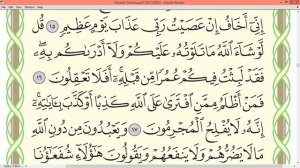 Mushaf Madina.pdf (SECURED) - Adobe Reader
إِنِّىٓ أَخَافُ إِنْ عَصَيْتُ رَبِّى عَذَابَ يَوْمٍ عَظِيمٍ ١٥ قُل
لَّوْ شَآءَ ٱللَّهُ مَا تَلَوْتُهُۥ عَلَيْكُمْ وَلَآ أَدْرَىٰكُم بِهِۦ
فَقَدْ لَبِثْتُ فِيكُمْ عُمُرًا مِّن قَبْلِهِۦٓ أَفَلَا تَعْقِلُونَ ١٦
فَمَنْ أَظْلَمُ مِمَّنِ ٱفْتَرَىٰ عَلَى ٱللَّهِ كَذِبًا أَوْ كَذَّبَ بِـَٔايَـٰتِهِۦٓ
إِنَّهُۥ لَا يُفْلِحُ ٱلْمُجْرِمُونَ ١٧ وَيَعْبُدُونَ مِن دُونِ ٱللَّهِ
مَا لَا يَضُرُّهُمْ وَلَا يَنفَعُهُمْ وَيَقُولُونَ هَـٰٓؤُلَآءِ شُفَعَـٰٓؤُنَا